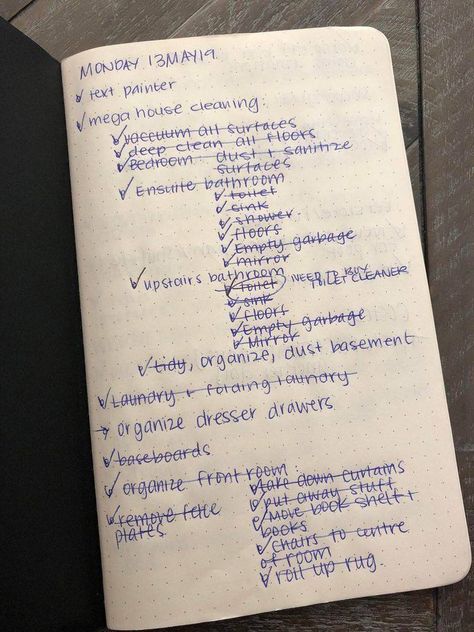 MONDAY 13MAY19
text painter
mega house cleaning:
vaccuum all surfaces
deep clean all floors
Bedroom: dust + sanitize
surfaces
Ensuite bathroom
toilet
sink
shower
floors
Empty garbage
mirror
upstairs bathroom
toilet NEED TO BUY
TOILET CLEANER
sink
floors
Empty garbage
Mirror
tidy, organize, dust basement
Laundry + folding laundry
→ organize dresser drawers
baseboards
organize front room:
take down curtains
put away stuff
Move book shelf +
books
chairs to centre
of room
roll up rug.
remove face
plates